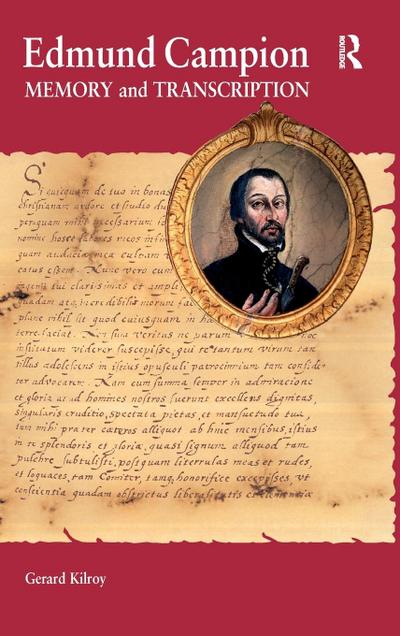 Edmund Campion
MEMORY and TRANSCRIPTION
ROUTLEDGE
Si quicquam de tuo in bonas
Christianam ardore et studio du
per quam mihi necessarium
nomine hosce labores meos
quam audacia mea culpam
catus essem. Nunc vero cum
tui clarissimas et
quadam atq; incredibilis morum fac
plane nihil sit quod cuiusquam in ho
terre faciat. veritus ne parum hoc
institutum viderer suscepisse, qui te tantum virum tan
tillus adolescens in istius opusculi patrocinium tam confide
ter advocarem. Nam cum summa semper in admiratione
et gloria ad homines nostros fuerunt excellens dignitas,
singularis eruditio, spectata pietas, et mansuetudo tua,
tam mihi prater cateros alliquot ab hinc mensibus, istius
in te splendoris et gloria, quasi signum alliquod tam
pulchre subtulisti, postquam literrulas meas et rudes,
et loquaces, tam comiter, tamq; honorifice excepisses, ut
conscientia quadam obstrictus liberalitatis et clementia
Gerard Kilroy